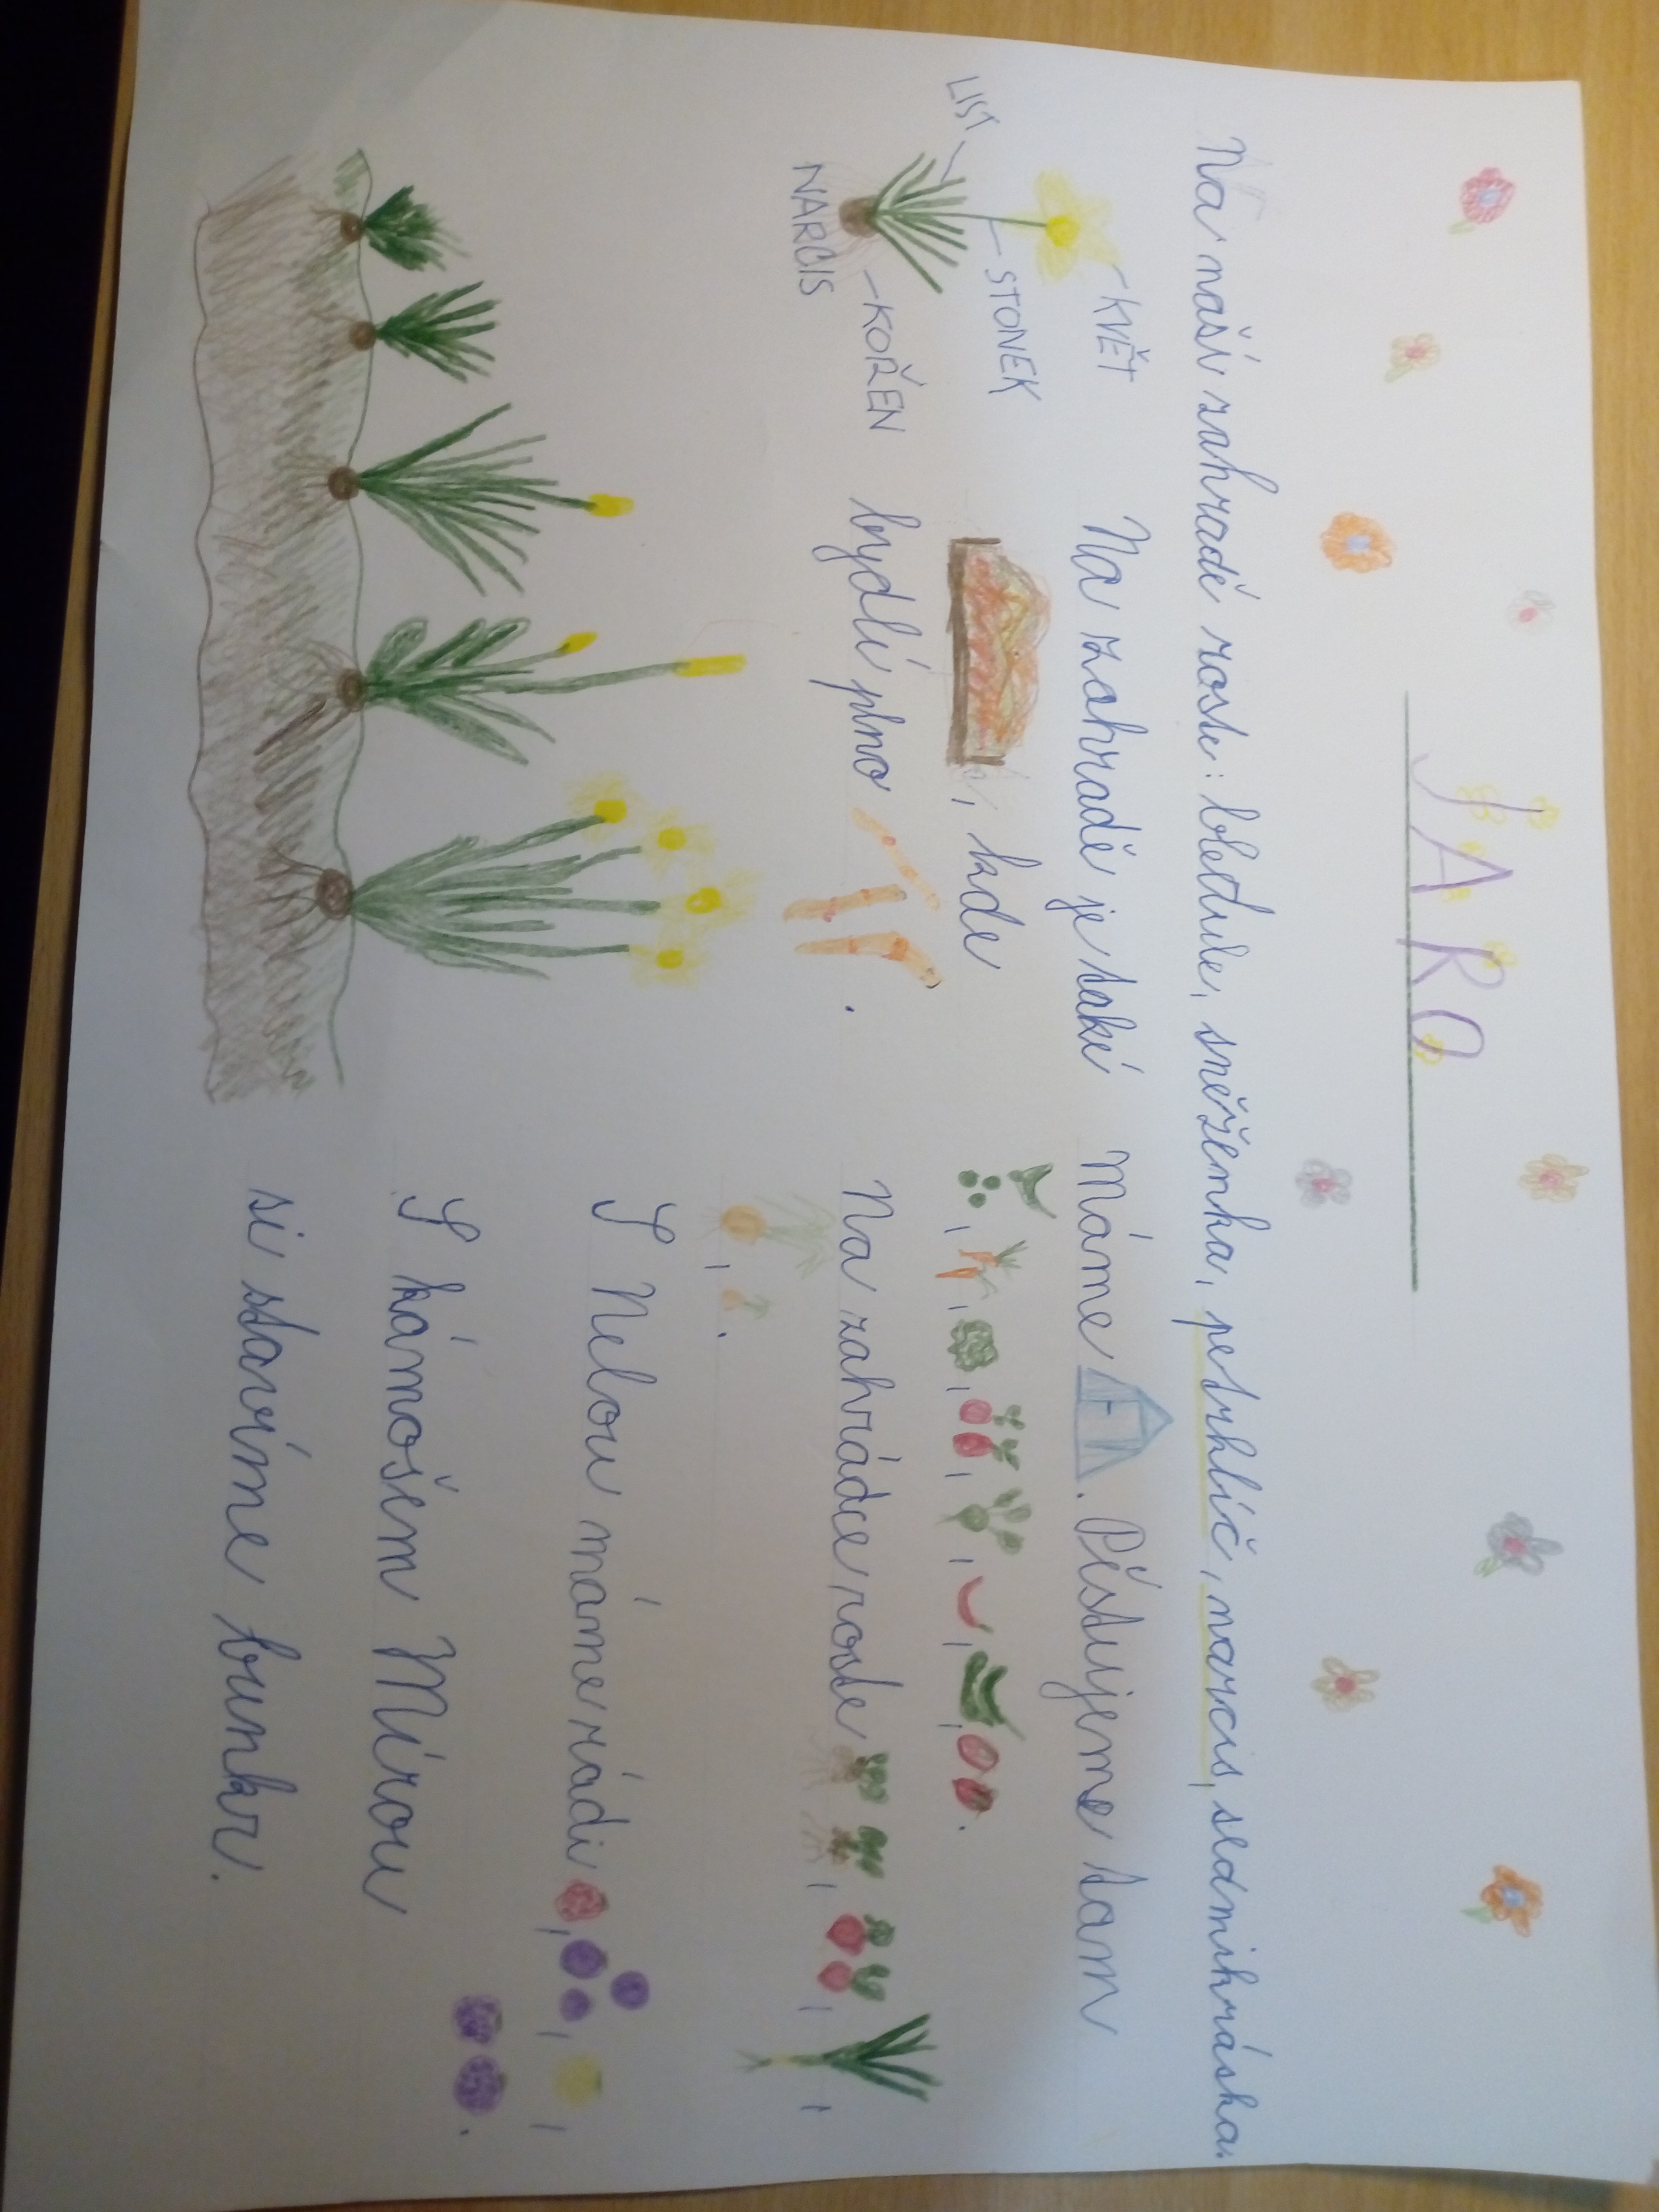 JARO
Na naší zahradě roste: bleďule, sněženka, petrklíč, narcis, sedmikráska.
KVĚT
STONEK
LIST
KOŘEN
NARCIS
Na zahradě je také
, kde
bydlí plno .
Máme . Pěstujeme tam
, , , , , , , .
Na zahrádce roste , , ,
, .
S Nelou máme rádi , , ,
.
S kámošem Mírou
si stavíme bunkr.